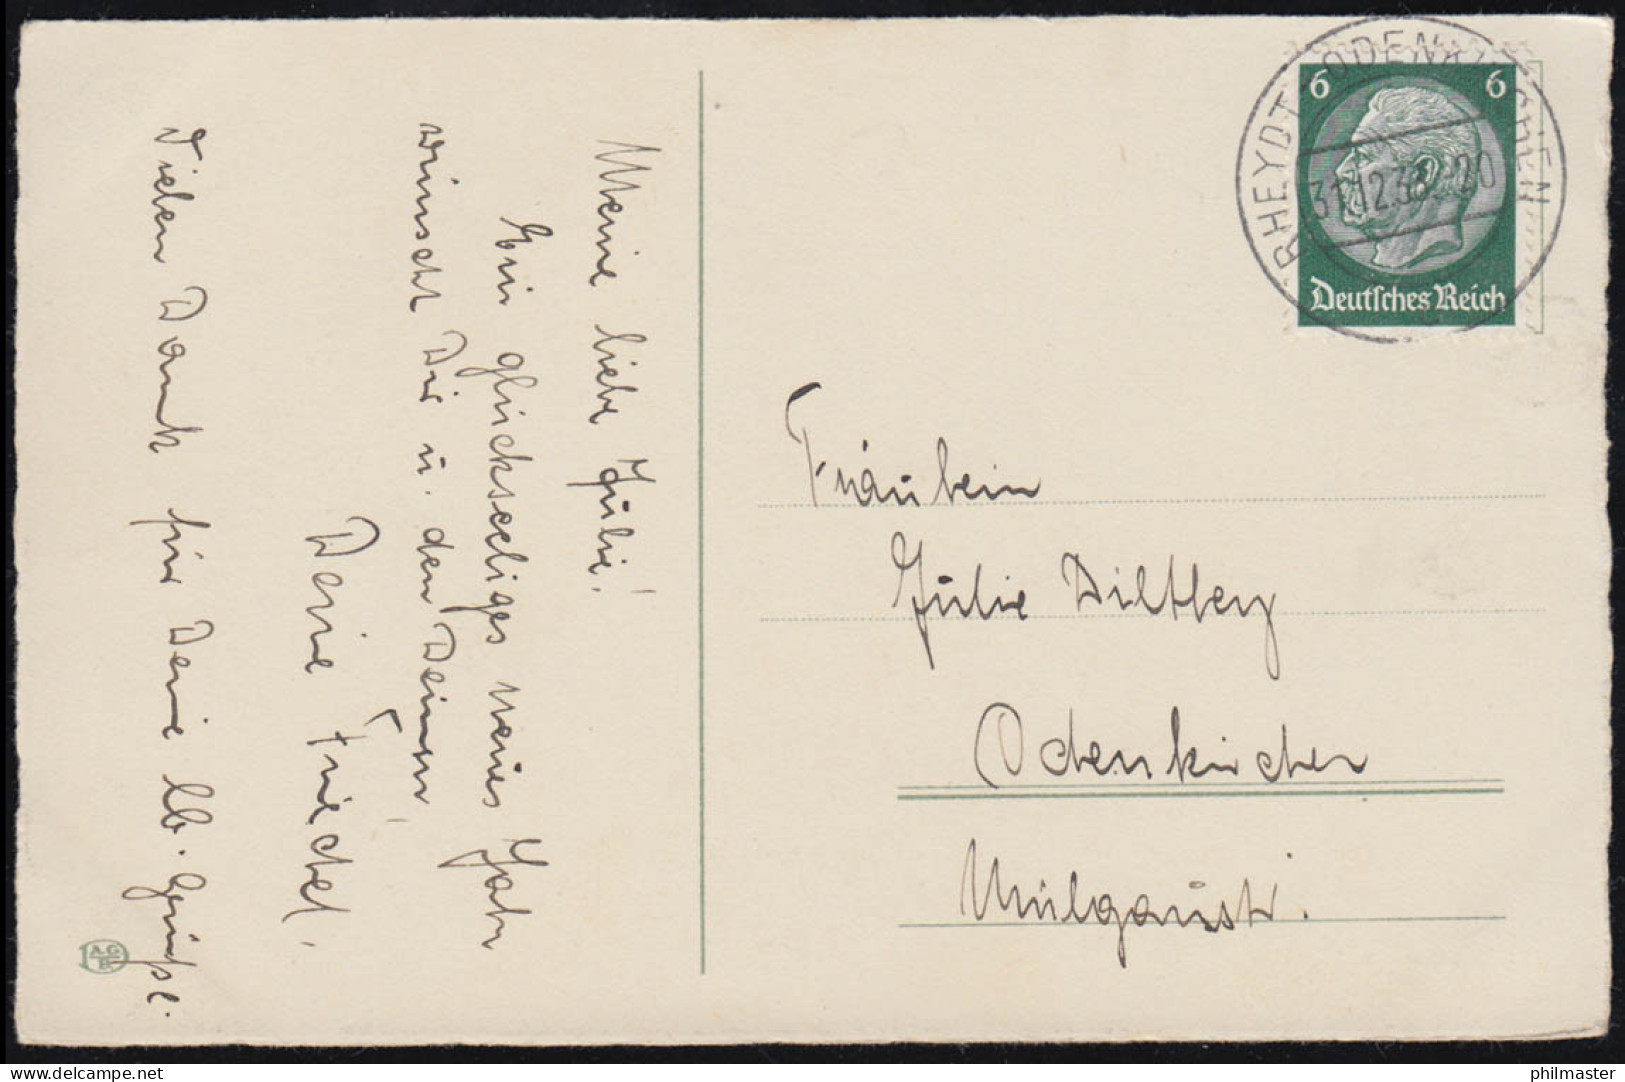 Meine liebe Julie!
Ein glückseeliges neues Jahr
wünscht Dir u. den Deinen
Deine Friedel.
Vielen Dank für Deine lb. Grüße.
RHEYDT-ODENKIRCHEN
31.12.33 -20
6 6
Deutsches Reich
Fräulein
Julie Dilthey
Odenkirchen
Mülgaustr.
AG
B
delcampe.net
philmaster